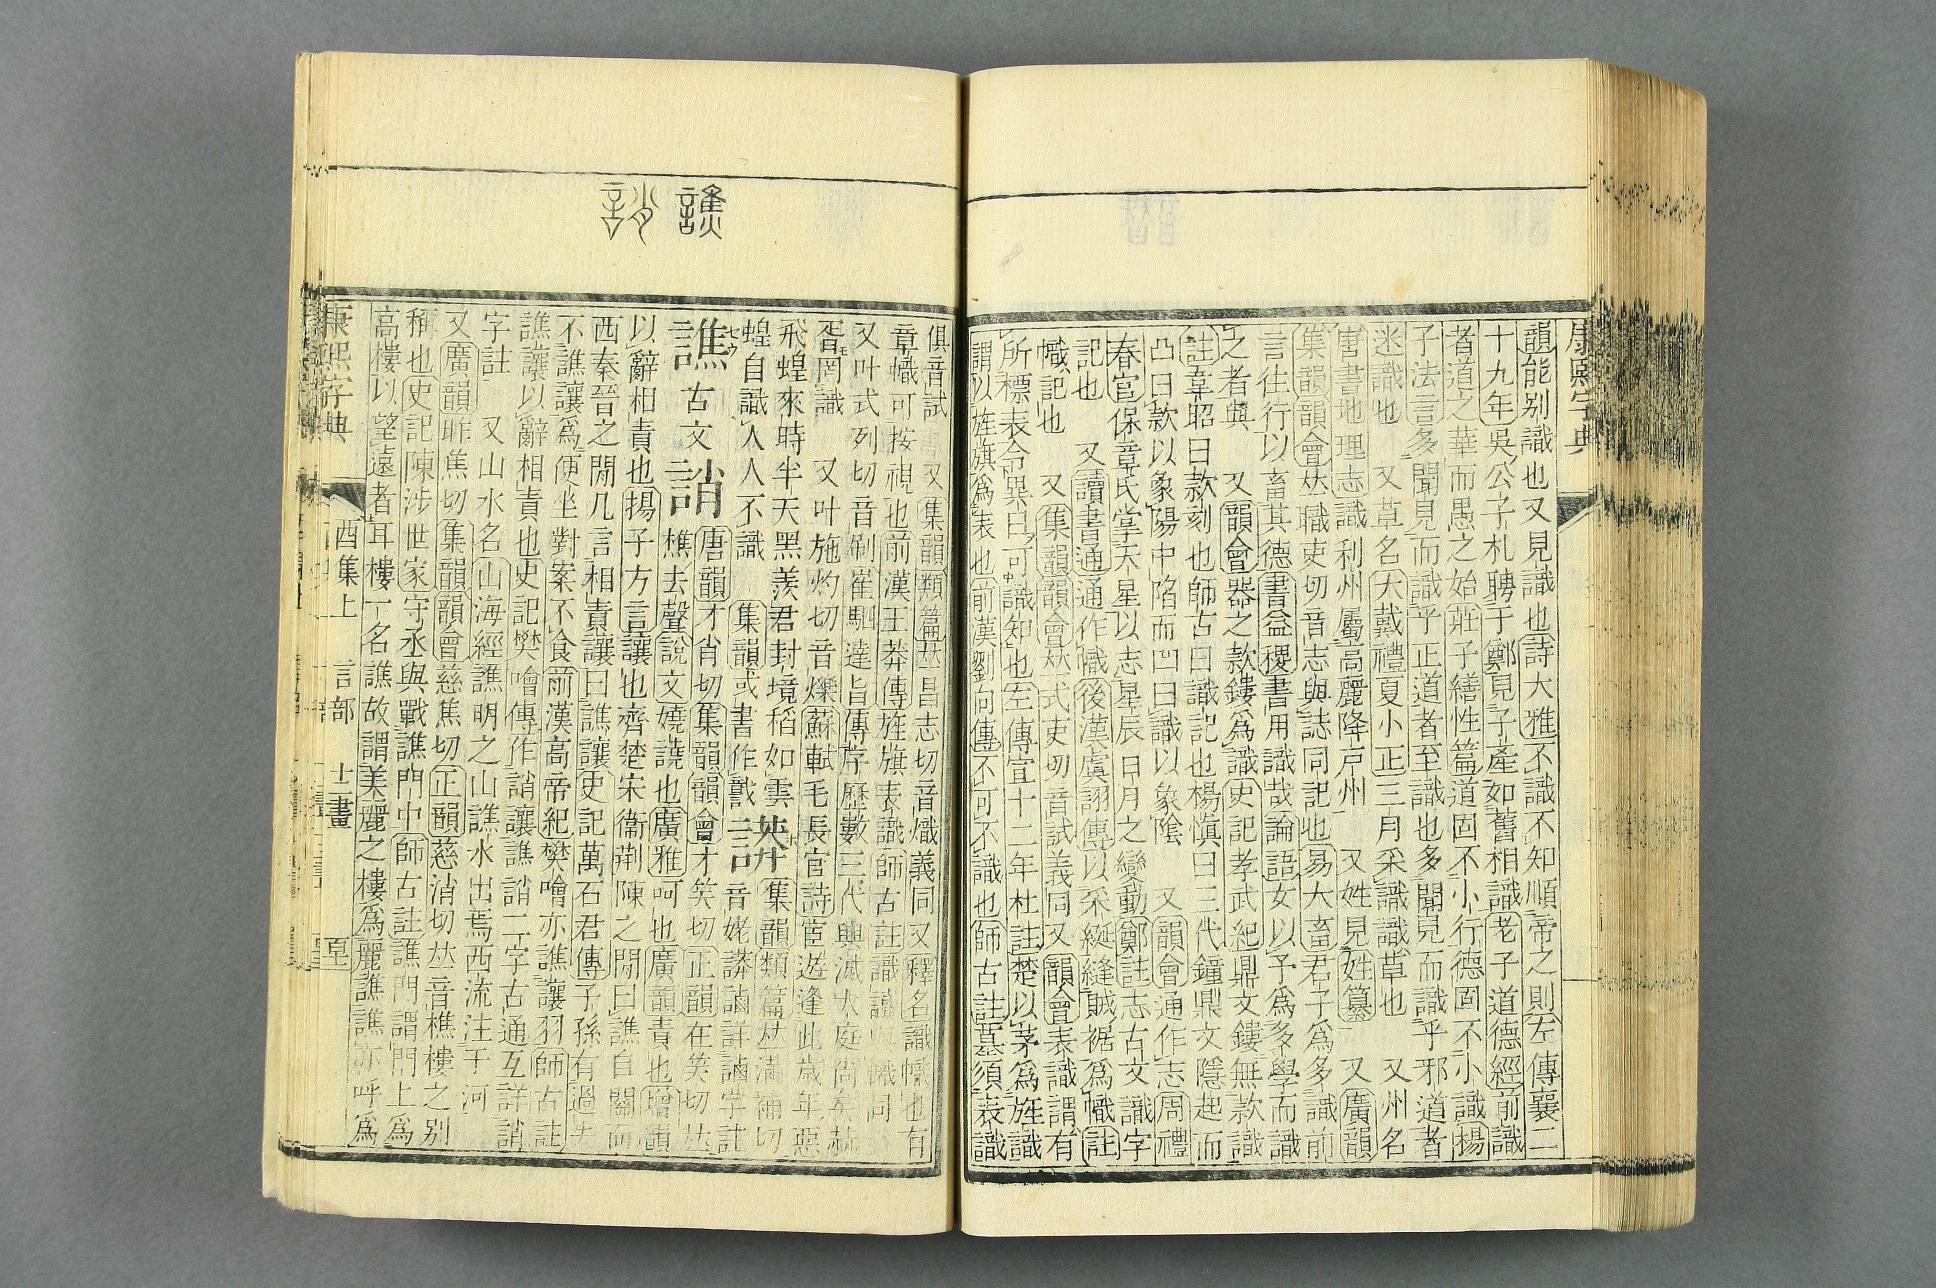 康熙字典
韻能别識也又見識也詩大雅不識不知順帝之則左傳襄二
十九年吳公子札聘于鄭見子產如舊相識老子道德經前識
者道之華而愚之始莊子繕性篇道固不小行德固不小識揚
子法言多聞見而識乎正道者至識也多聞見而識乎邪道者
迷識也 又草名大戴禮夏小正三月采識識草也 又州名
唐書地理志識利州屬高麗降戸州 又姓見姓纂 又廣韻
集韻韻會𠀤職吏切音志與誌同記也易大畜君子爲多識前
言往行以畜其德書益稷書用識哉論語女以予爲多學而識
之者與 又韻會器之款鏤爲識史記孝武紀鼎文鏤無款識
註韋昭曰款刻也師古曰識記也楊愼曰三代鐘鼎文隱起而
凸曰款以象陽中陷而凹曰識以象陰 又韻會通作志周禮
春官保章氏掌天星以志星辰日月之變動鄭註志古文識字
記也 又讀書通通作幟後漢虞詡傳以采綖縫賊裾爲幟註
幟記也 又集韻韻會𠀤式吏切音試義同又韻會表識謂有
所標表令異曰可識知也左傳宣十二年杜註楚以茅爲旌識
謂以旌旗爲表也前漢劉向傳不可不識也師古註墓須表識
譙 誚
俱音試 又集韻類篇𠀤昌志切音熾義同又釋名識幟也有
章幟可按視也前漢王莽傳旌旗表識師古註識讀與幟同
又叶式列切音刷崔駰達旨傳序歷數三代興滅大庭尚矣赫
胥罔識 又叶施灼切音爍蘇軾毛長官詩宦遊逢此歲年惡
飛蝗來時半天黑羨君封境稻如雲蝗自識人人不識
集韻或書作䛊 𧩙 集韻類篇𠀤滿補切音姥䜖𧩙詳䜖字註
譙 古文誚 唐韻才肖切集韻韻會才笑切正韻在笑切𠀤
樵去聲說文嬈譊也廣雅呵也廣韻責也增韻
以辭相責也揚子方言讓也齊楚宋衞荆陳之閒曰譙自關而
西秦晉之閒凡言相責讓曰譙讓史記萬石君傳子孫有過失
不譙讓爲便坐對案不食前漢高帝紀樊噲亦譙讓羽師古註
譙讓以辭相責也史記樊噲傳作誚讓譙誚二字古通互詳誚
字註 又山水名山海經譙明之山譙水出焉西流注于河
又廣韻昨焦切集韻韻會慈焦切正韻慈消切𠀤音樵樓之别
稱也史記陳涉世家守丞與戰譙門中師古註譙門謂門上爲
高樓以望遠者耳樓一名譙故謂美麗之樓爲麗譙譙亦呼爲
康熙字典 酉集上 言部 十二畫